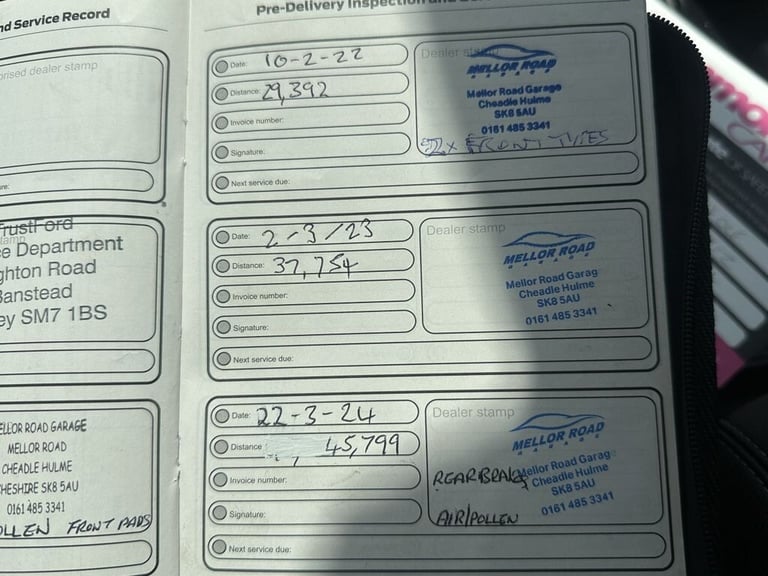 nd Service Record
orised dealer stamp
TrustFord
e Department
ghton Road
Banstead
ey SM7 1BS
ELLOR ROAD GARAGE
MELLOR ROAD
CHEADLE HULME
HESHIRE SK8 5AU
0161 485 3341
OLLEN FRONT PADS
Pre-Delivery Inspection and
Date: 10-2-22
Distance: 29,392
Invoice number:
Signature:
Next service due:
Dealer stamp
MELLOR ROAD
GARAGE
Mellor Road Garage
Cheadle Hulme
SK8 5AU
0161 485 3341
2x FRONT TYRES
Date: 2-3/23
Distance: 37,754
Invoice number:
Signature:
Next service due:
Dealer stamp
MELLOR ROAD
GARAGE
Mellor Road Garag
Cheadle Hulme
SK8 5AU
0161 485 3341
Date: 22-3-24
Distance: 45,799
Invoice number:
Signature:
Next service due:
Dealer stamp
MELLOR ROAD
GARAGE
REAR BRAKE
Mellor Road Garag
Cheadle Hulme
SK8 5AU
0161 485 3341
AIR/POLLEN